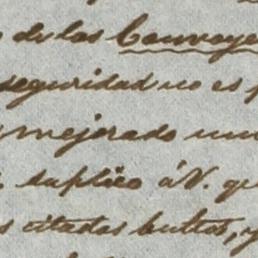 de las Convoye
seguridad no es
mejorado mu
suplico á V. qu
s citados bultos, y